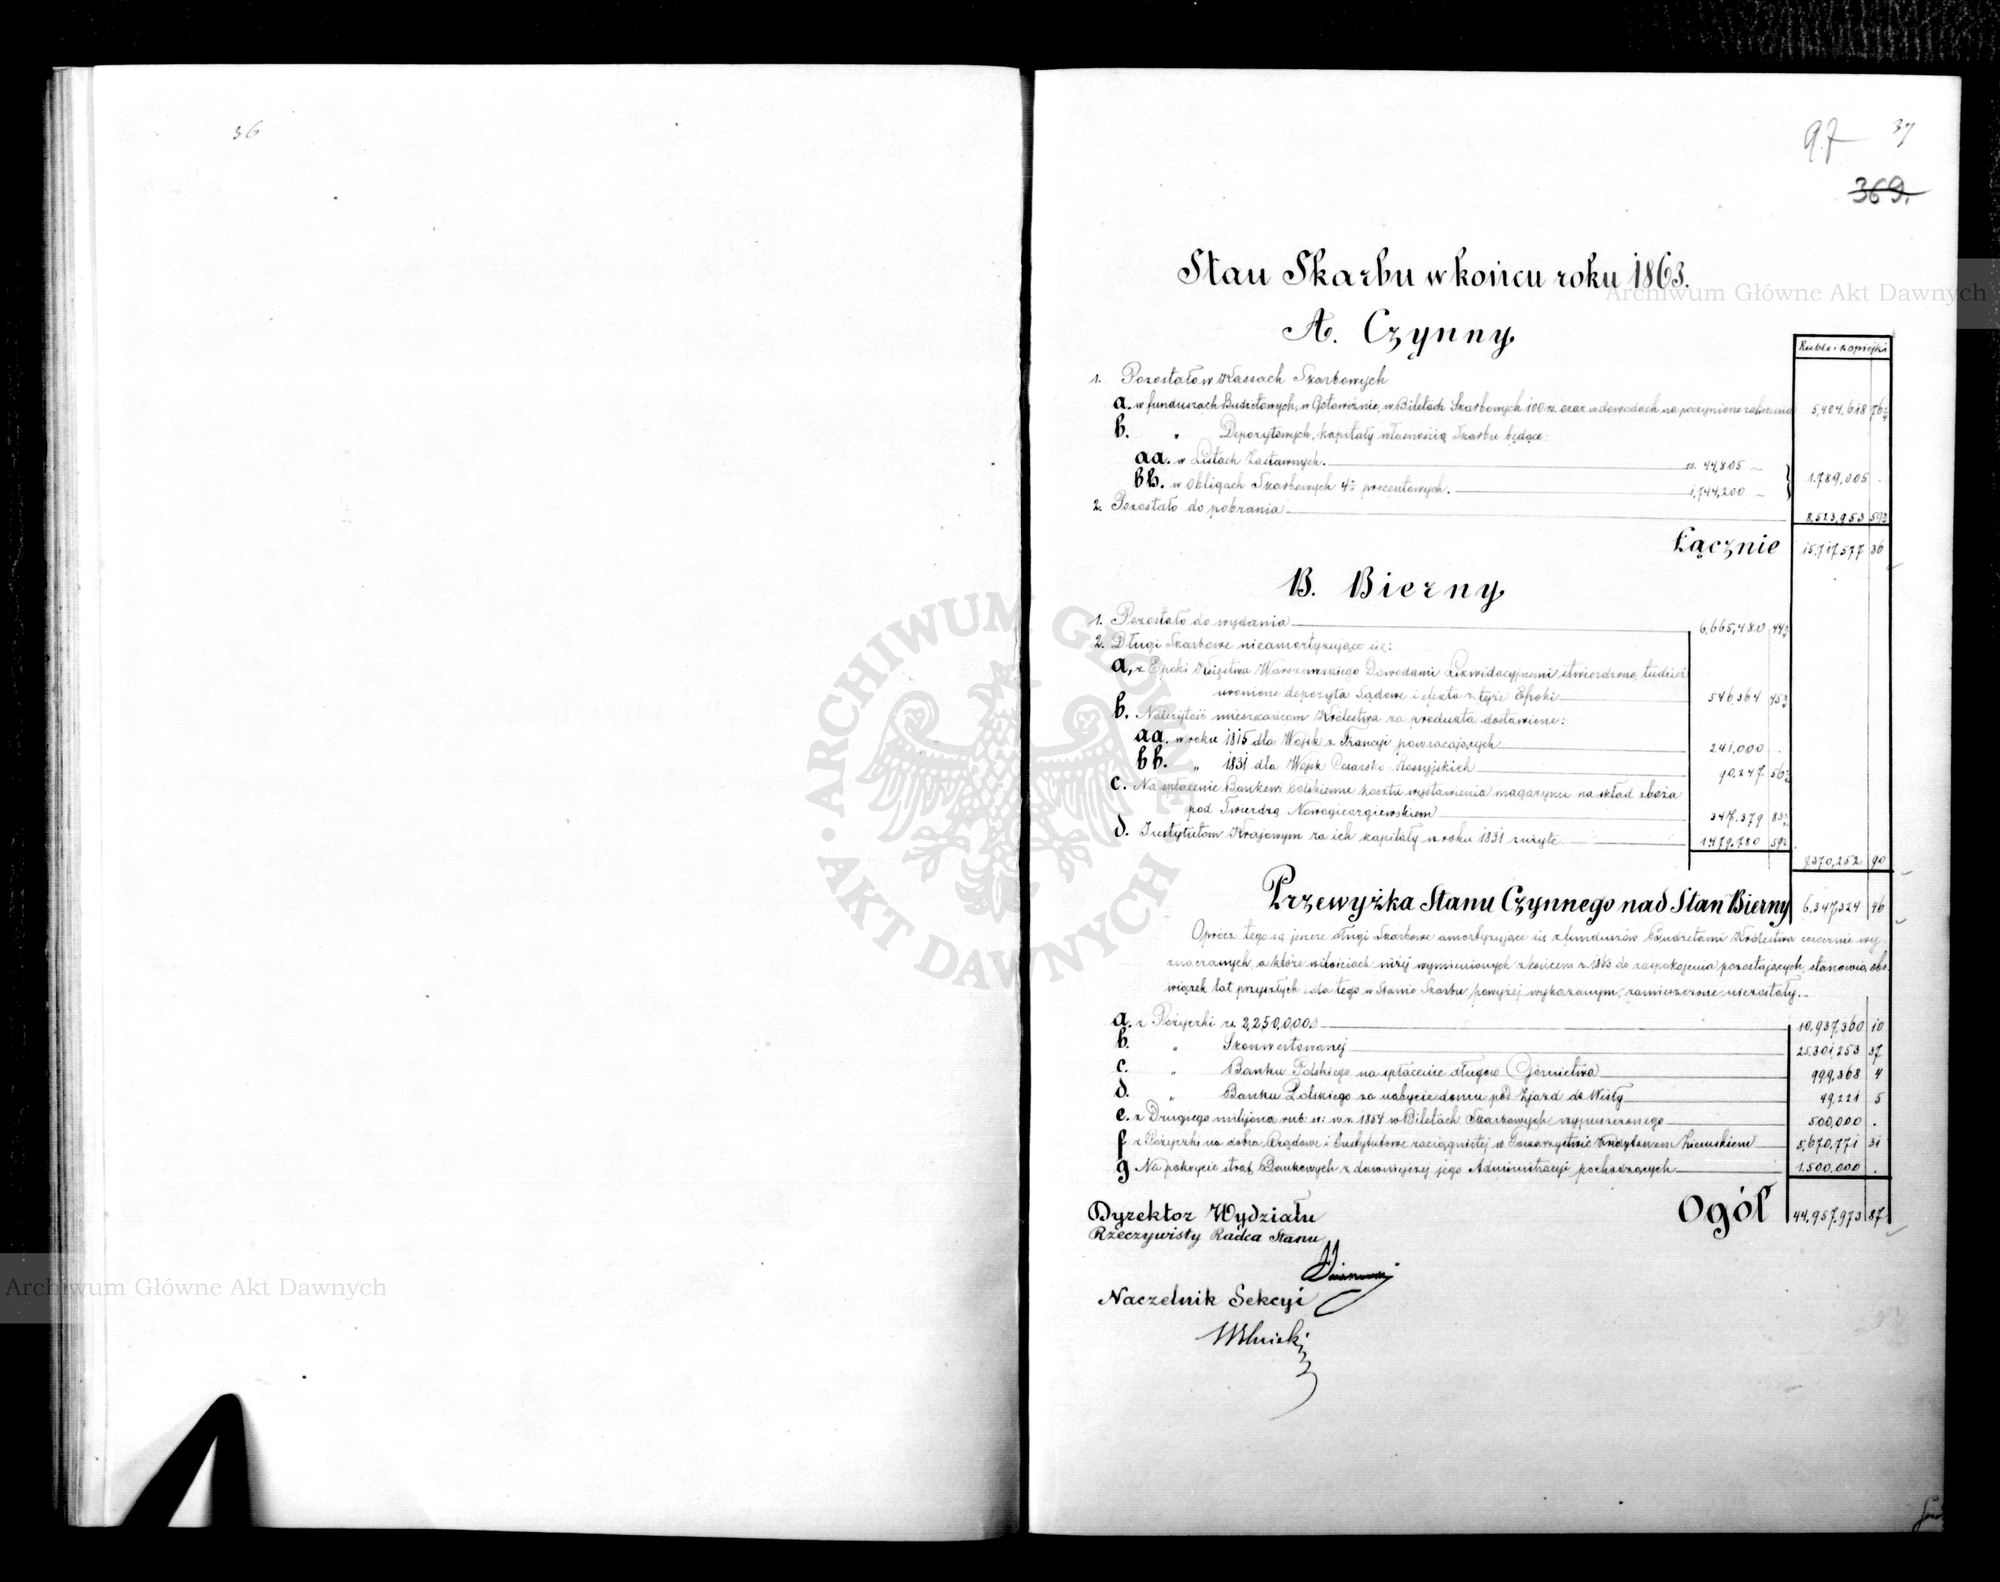 36
97 37
369.
Stan Skarbu w końcu roku 1863.
A. Czynny
Ruble kopiejki
1. Pozostało w Kassach Skarbowych
a. w funduszach Budżetowych, w Gotowiźnie, w Biletach Skarbowych 100 rs. oraz w dowodach na poczynione zaliczenia 5,404,618 76½
b. " Depozytowych, kapitały własnością Skarbu będące:
aa. w Listach Zastawnych. rs. 44,805 –
bb. w obligach Skarbowych 4% procentowych. 1,744,200 – 1.789,005 .
2. Pozostało do pobrania 8,523,953 59½
Łącznie 15,717,577 36
B. Bierny
1. Pozostało do wydania 6,665,480 44½
2. Długi Skarbowe nieamortyzujące się:
a, z Epoki Księstwa Warszawskiego Dowodami Likwidacyjnemi stwierdzone, tudzież
uronione depozyta Sądowe i efekta z tejże Epoki 546,364 45½
b. Należytość mieszkańcom Królestwa za produkta dostawione:
aa. w roku 1815 dla Wojsk z Francji powracających 241,000 .
bb. " 1831 dla Wojsk Cesarsko Rossyjskich 90,247. 56½
c. Na spłacenie Bankowi Polskiemu kosztu wystawienia magazynu na skład zboża
pod Twierdzą Nowogieorgiewskiem 347,379 83½
d. Instytutom Krajowym za ich kapitały w roku 1831 zużyte 1,479,780 59½
9,370,252 90
Przewyżka Stanu Czynnego nad Stan Bierny 6,347,324 46
Oprócz tego są jeszcze długi Skarbowe amortyzujące się z funduszów Budżetami Królestwa corocznie wy-
znaczanych, a które w ilościach niżej wymienionych z końcem r. 1863 do zaspokojenia pozostających, stanowią obo-
wiązek lat przyszłych i dla tego w Stanie Skarbu powyżej wykazanym, zamieszczone niezostały.–
a. z Pożyczki rs. 2,250,000 10,937,360 10
b. " Skonwertowanej 25,301,253 37
c. " Banku Polskiego na spłacenie długów Górnictwa 999,368 4
d. " Banku Polskiego za nabycie domu pod Zjazd do Wisły 49,221 5
e. z Drugiego miliona rub. sr: w r. 1854 w Biletach Skarbowych wypuszczonego 500,000 .
f z Pożyczki na dobra Rządowe i Instytutowe zaciągniętej w Towarzystwie Kredytowem Ziemskiem 5,670,771 31
g Na pokrycie strat Bankowych z dawniejszej jego Administracji pochodzących 1.500,000 .
Ogół 44,957,973 87
Dyrektor Wydziału
Rzeczywisty Radca Stanu
Naczelnik Sekcyi
Archiwum Główne Akt Dawnych
Archiwum Główne Akt Dawnych
ARCHIWUM GŁÓWNE AKT DAWNYCH